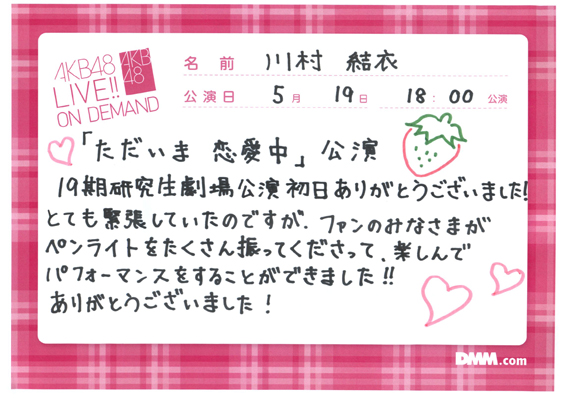 AKB48
LIVE!!
ON DEMAND
AKB
48
名 前 川村 結衣
公演日 5月 19日 18:00 公演
「ただいま 恋愛中」公演
19期研究生劇場公演初日ありがとうございました!
とても緊張していたのですが、ファンのみなさまが
ペンライトをたくさん振ってくださって、楽しんで
パフォーマンスをすることができました!!
ありがとうございました!
DMM.com